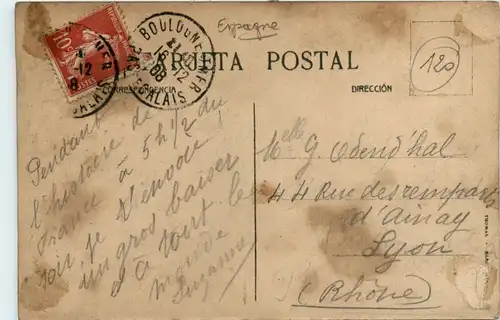 Espagne
TARJETA POSTAL
120
BOULOGNE S MER
12
08
PAS-DE-CALAIS
CORRESPONDENCIA
DIRECCIÓN
Pendant
l'histoire de
France à 5h 1/2 du
soir je t'envoie
un gros baiser
et à tout le
monde
Suzanne
Melle G. Odend'hal
44 Rue des remparts
d'Ainay
Lyon
(Rhône)